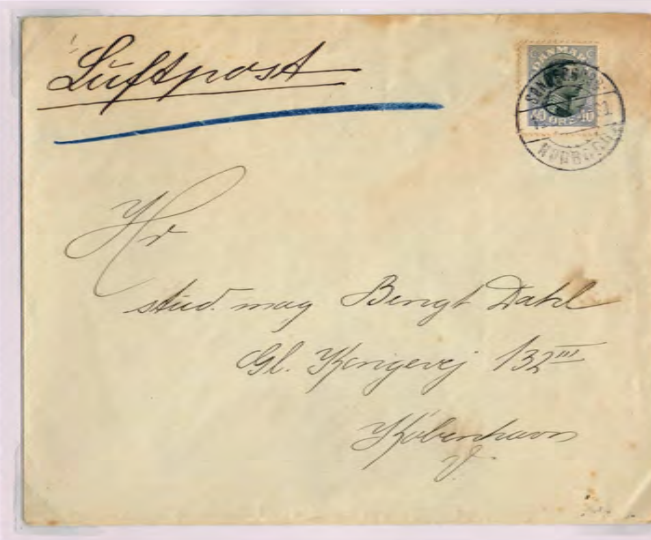 Luftpost
DANMARK
40 ØRE 40
SØNDERBORG
NORDBORG
Hr
stud. mag Bengt Dahl
Gl. Kongevej 132 III
København
V.